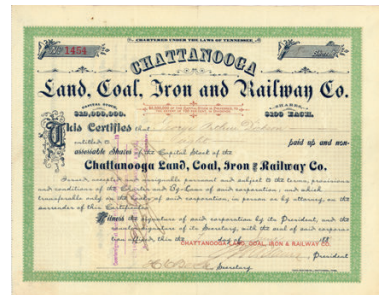 CHARTERED UNDER THE LAWS OF TENNESSEE.
No 1454
CHATTANOOGA
Land, Coal, Iron and Railway Co.
CAPITAL STOCK, SHARES,
$100 EACH.
This Certifies that George Arthur
entitled to paid up and non-
assessable Shares of the Capital Stock of the
Chattanooga Land, Coal, Iron & Railway Co.
Issued, accepted and assignable personal and subject to the terms, provisions
and conditions of the Charter and By-Laws of said corporation; and which
transferable only on the books of said corporation, in person or by attorney, on the
surrender of this Certificate.
Witness the signature of said corporation by its President, and the
countersignature of its Secretary, with the seal of said corporation
affixed, this the day of 18
CHATTANOOGA LAND, COAL, IRON & RAILWAY CO.
President
Secretary